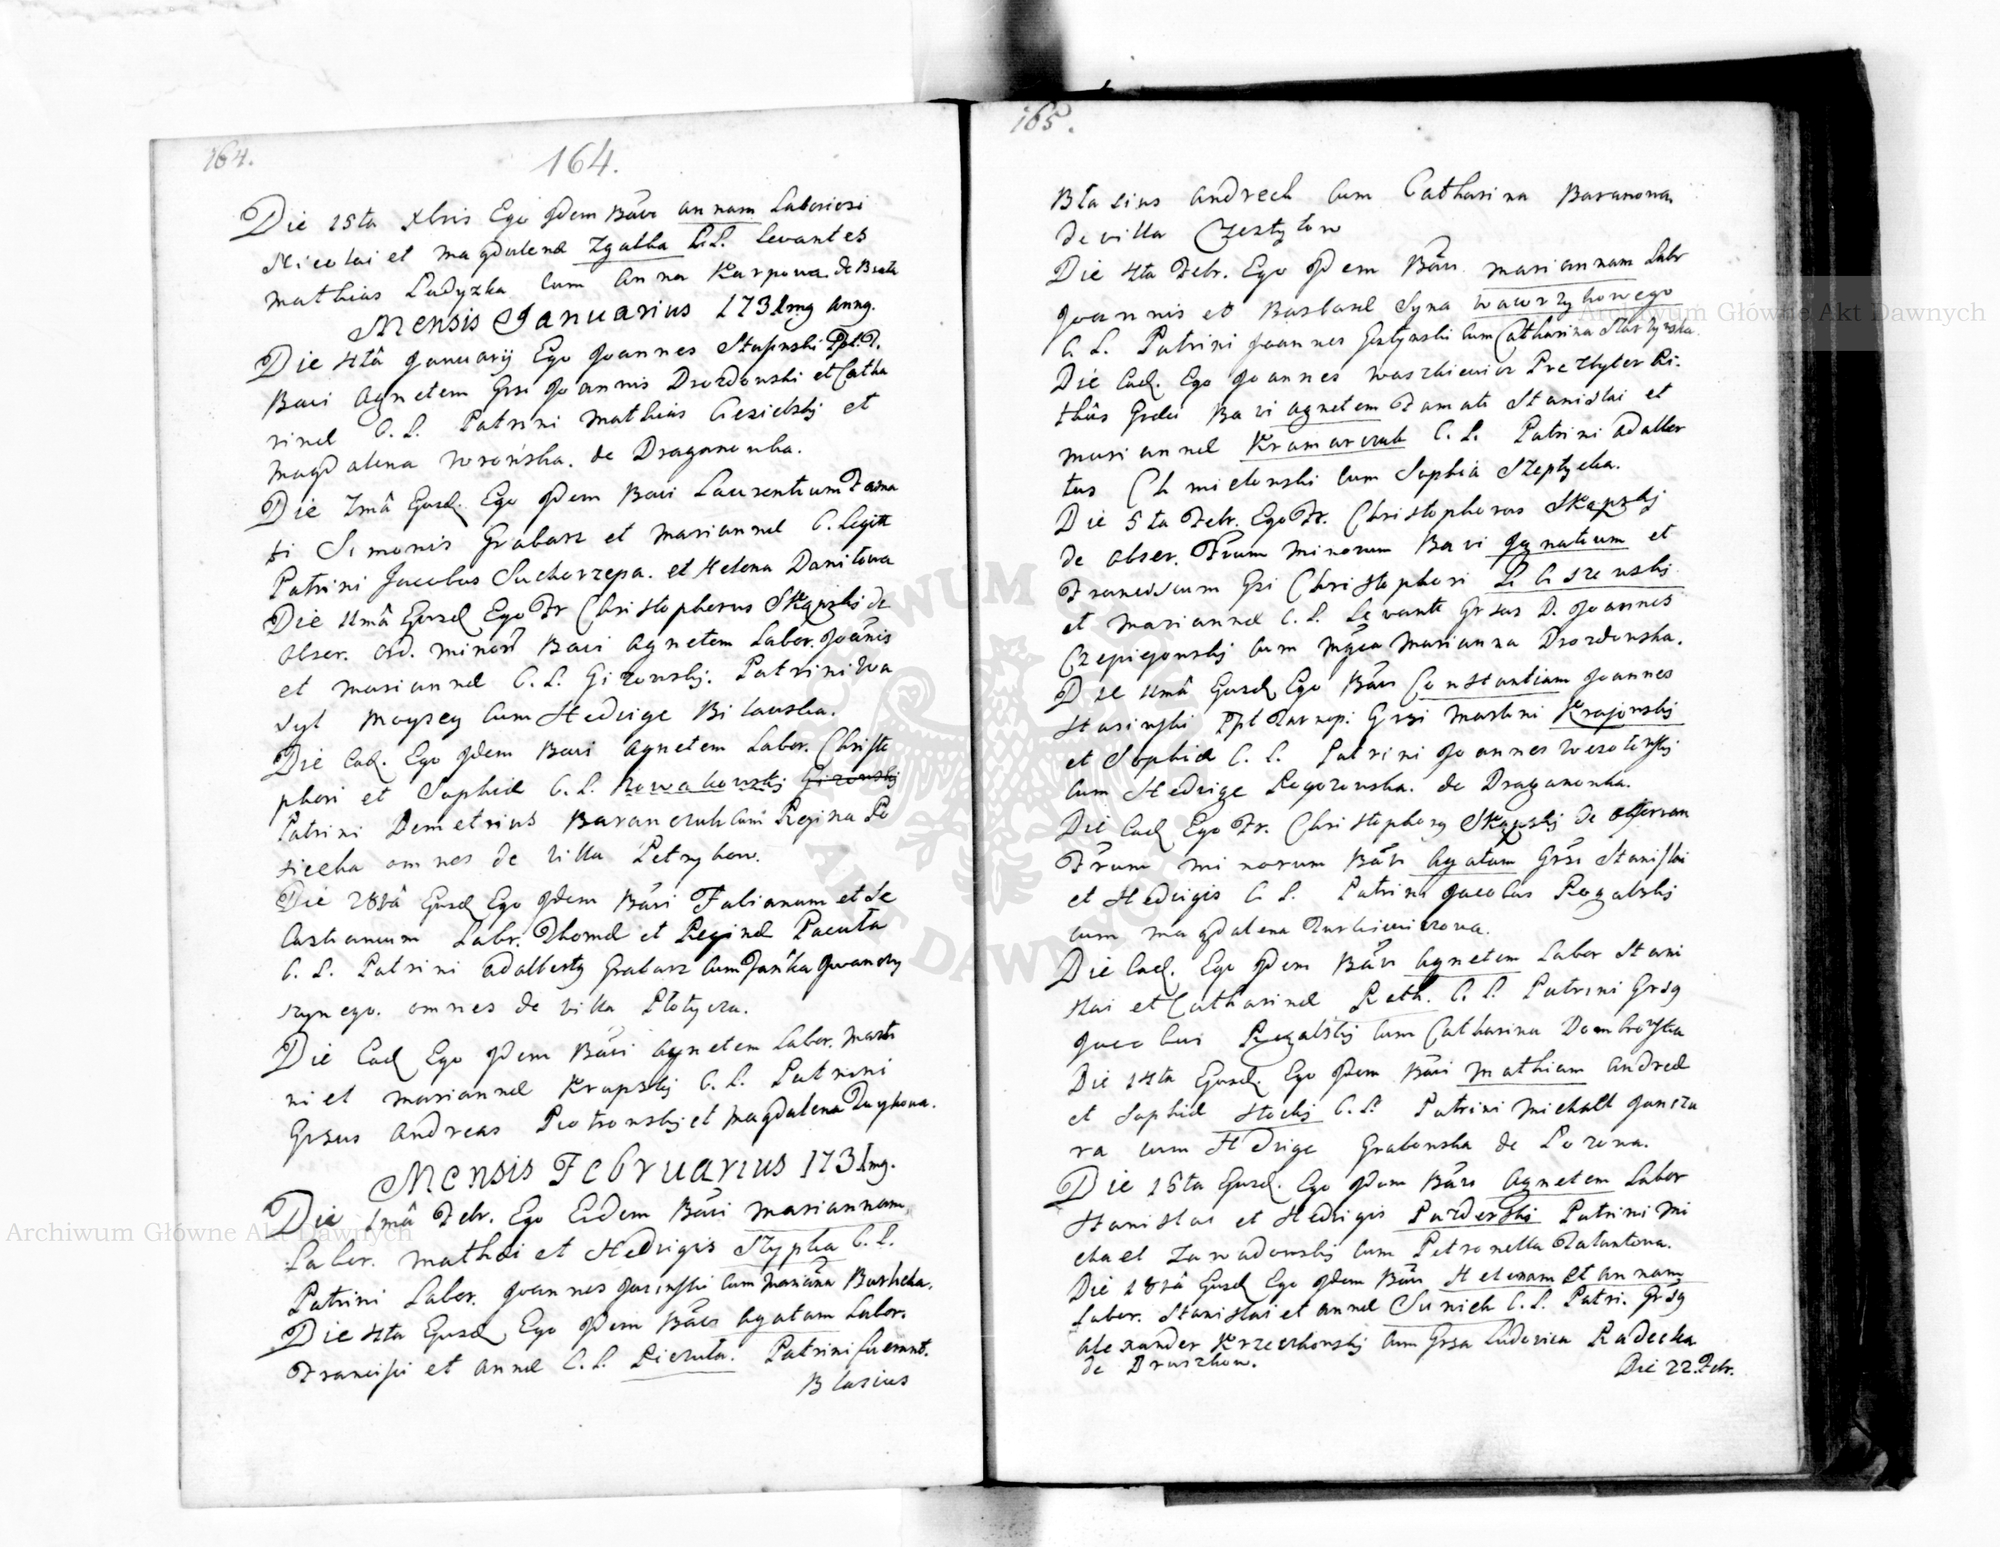 164.
164.
Die 15ta Xbris Ego qdem Bāvi annam Laboriosi
Nicolai et Magdalenæ Zgalka C.L. Levantes
Mathias Ladyzka Cum Anna Karpowa. de
Mensis Januarius 1731mg Anng.
Die 4tâ Januarij Ego Joannes
Bavi Agnetem Grsi Joannis Drozdowski et Catha
rinæ C. L. Patrini Mathias et
Magdalena Wrońska. de Draganowka.
Die 7mâ Eiusd. Ego qdem Bavi Laurentium Fama
ti Simonis Grabarz et Mariannæ C. Legitt
Patrini Jacobus Suchorzepa. et Helena Daniłowa
Die 11mâ Eiusd Ego Fr Christophorus Skąpskj de
obser. Ord. Minor Bavi Agnetem Labor. Joānis
et Mariannæ C. L. Gizowskj. Patrini Wa
syl Moysey Cum Hedvige Bilawska.
Die Ead. Ego qdem Bavi Agnetem Labor. Christo
phori et Sophiæ C. L. Nowakowskj Gizowskj
Patrini Demetrius Baranczuk Cum Regina Po
siecka omnes de Villa Petrykow.
Die 20mâ Eiusd Ego qdem Bāvi Fabianum et Se
bastianum Labr. Thomæ et Reginæ Pacuła
C. L. Patrini Adalbertg Grabarz Cum Jaśka Jwanczy
szynego. omnes de Villa Płotycza.
Die Ead Ego qdem Bāvi Agnetem Labor. Marti
ni et Mariannæ Krapskj C. L. Patrini
Grsus Andreas Piotrowskj et Magdalena
Mensis Februarius 1731mg.
Die 1mâ Febr. Ego Eidem Bāvi Mariannam
Labor. Mathæi et Hedvigis Szypka C. L.
Patrini Labor. Joannes Jasinski Cum Mariāna
Die 4ta Eiusd Ego qdem Bāvi Agatam Labor.
Francisci et Annæ C. L. Pieczuła. Patrini fuerunt.
Blasius
165.
Blasius Andrech Cum Catharina Baranowa,
de villa Czystyłow
Die 4ta Febr. Ego qdem Bāvi. Mariannam Labr
Joannis et Barbaræ Syna Wawrzykowego
C. L. Patrini Joannes Cum Catharina
Die Ead. Ego Joannes Waszkiewicz Prezbyter Ri-
thûs Græci Bavi Agnetem Famati Stanislai et
Mariannæ Kramarczuk C. L. Patrini Adalber
tus Chmielowski Cum Sophia Szeptycka.
Die 5ta Febr. Ego Fr. Christophorus Skąpskj
de obser. Frum Minorum Bavi Jgnatium et
Franciscum Gsi Christophori
et Mariannæ C. L. Levante Grsus D. Joannes
Czepiegowskj Cum Mgca Marianna Drozdowska.
Die 11mâ Eiusd Ego Bāvi Constantiam Joannes
Ppt Tarnopi Grsi Martini Krajowskj
et Sophiæ C. L. Patrini Joannes Wesołowskj
Cum Hedvige Rogozowska. de Draganowka.
Die Ead Ego Fr. Christophorg Skąpskj de observan
Frum Minorum Bāvi Agatam Grsi Stanislai
et Hedvigis C. L. Patrini Jacobus Rogalskj
cum Magdalena Turkiewiczowa.
Die Ead. Ego qdem Bāvi Agnetem Labor Stani
slai et Catharinæ Reth. C. L. Patrini Grsg
Jacobus Rogalskj Cum Catharina Dombrowska
Die 14ta Eiusd. Ego qdem Bāvi Mathiam Andreæ
et Sophiæ Stockj C. L. Patrini Michaël Janczu
ra cum Hedvige Grabowska de Lozowa.
Die 16ta Eiusd. Ego qdem Bāvi Agnetem Labor
Stanislai et Hedvigis Pazderskj Patrini Mi
chael Zawadowskj Cum Petronella Falantowa.
Die 18vâ Eiusd Ego qdem Bāvi Helenam et Annam
Labor. Stanislai et Annæ Sunich C. L. Patri. Grsg
Alexander Krzeczkowskj Cum Grsa Ludovica Radecka
de Draszkow.
Die 22. Febr.
Archiwum Główne Akt Dawnych
Archiwum Główne Akt Dawnych
ARCHIWUM GŁÓWNE AKT DAWNYCH